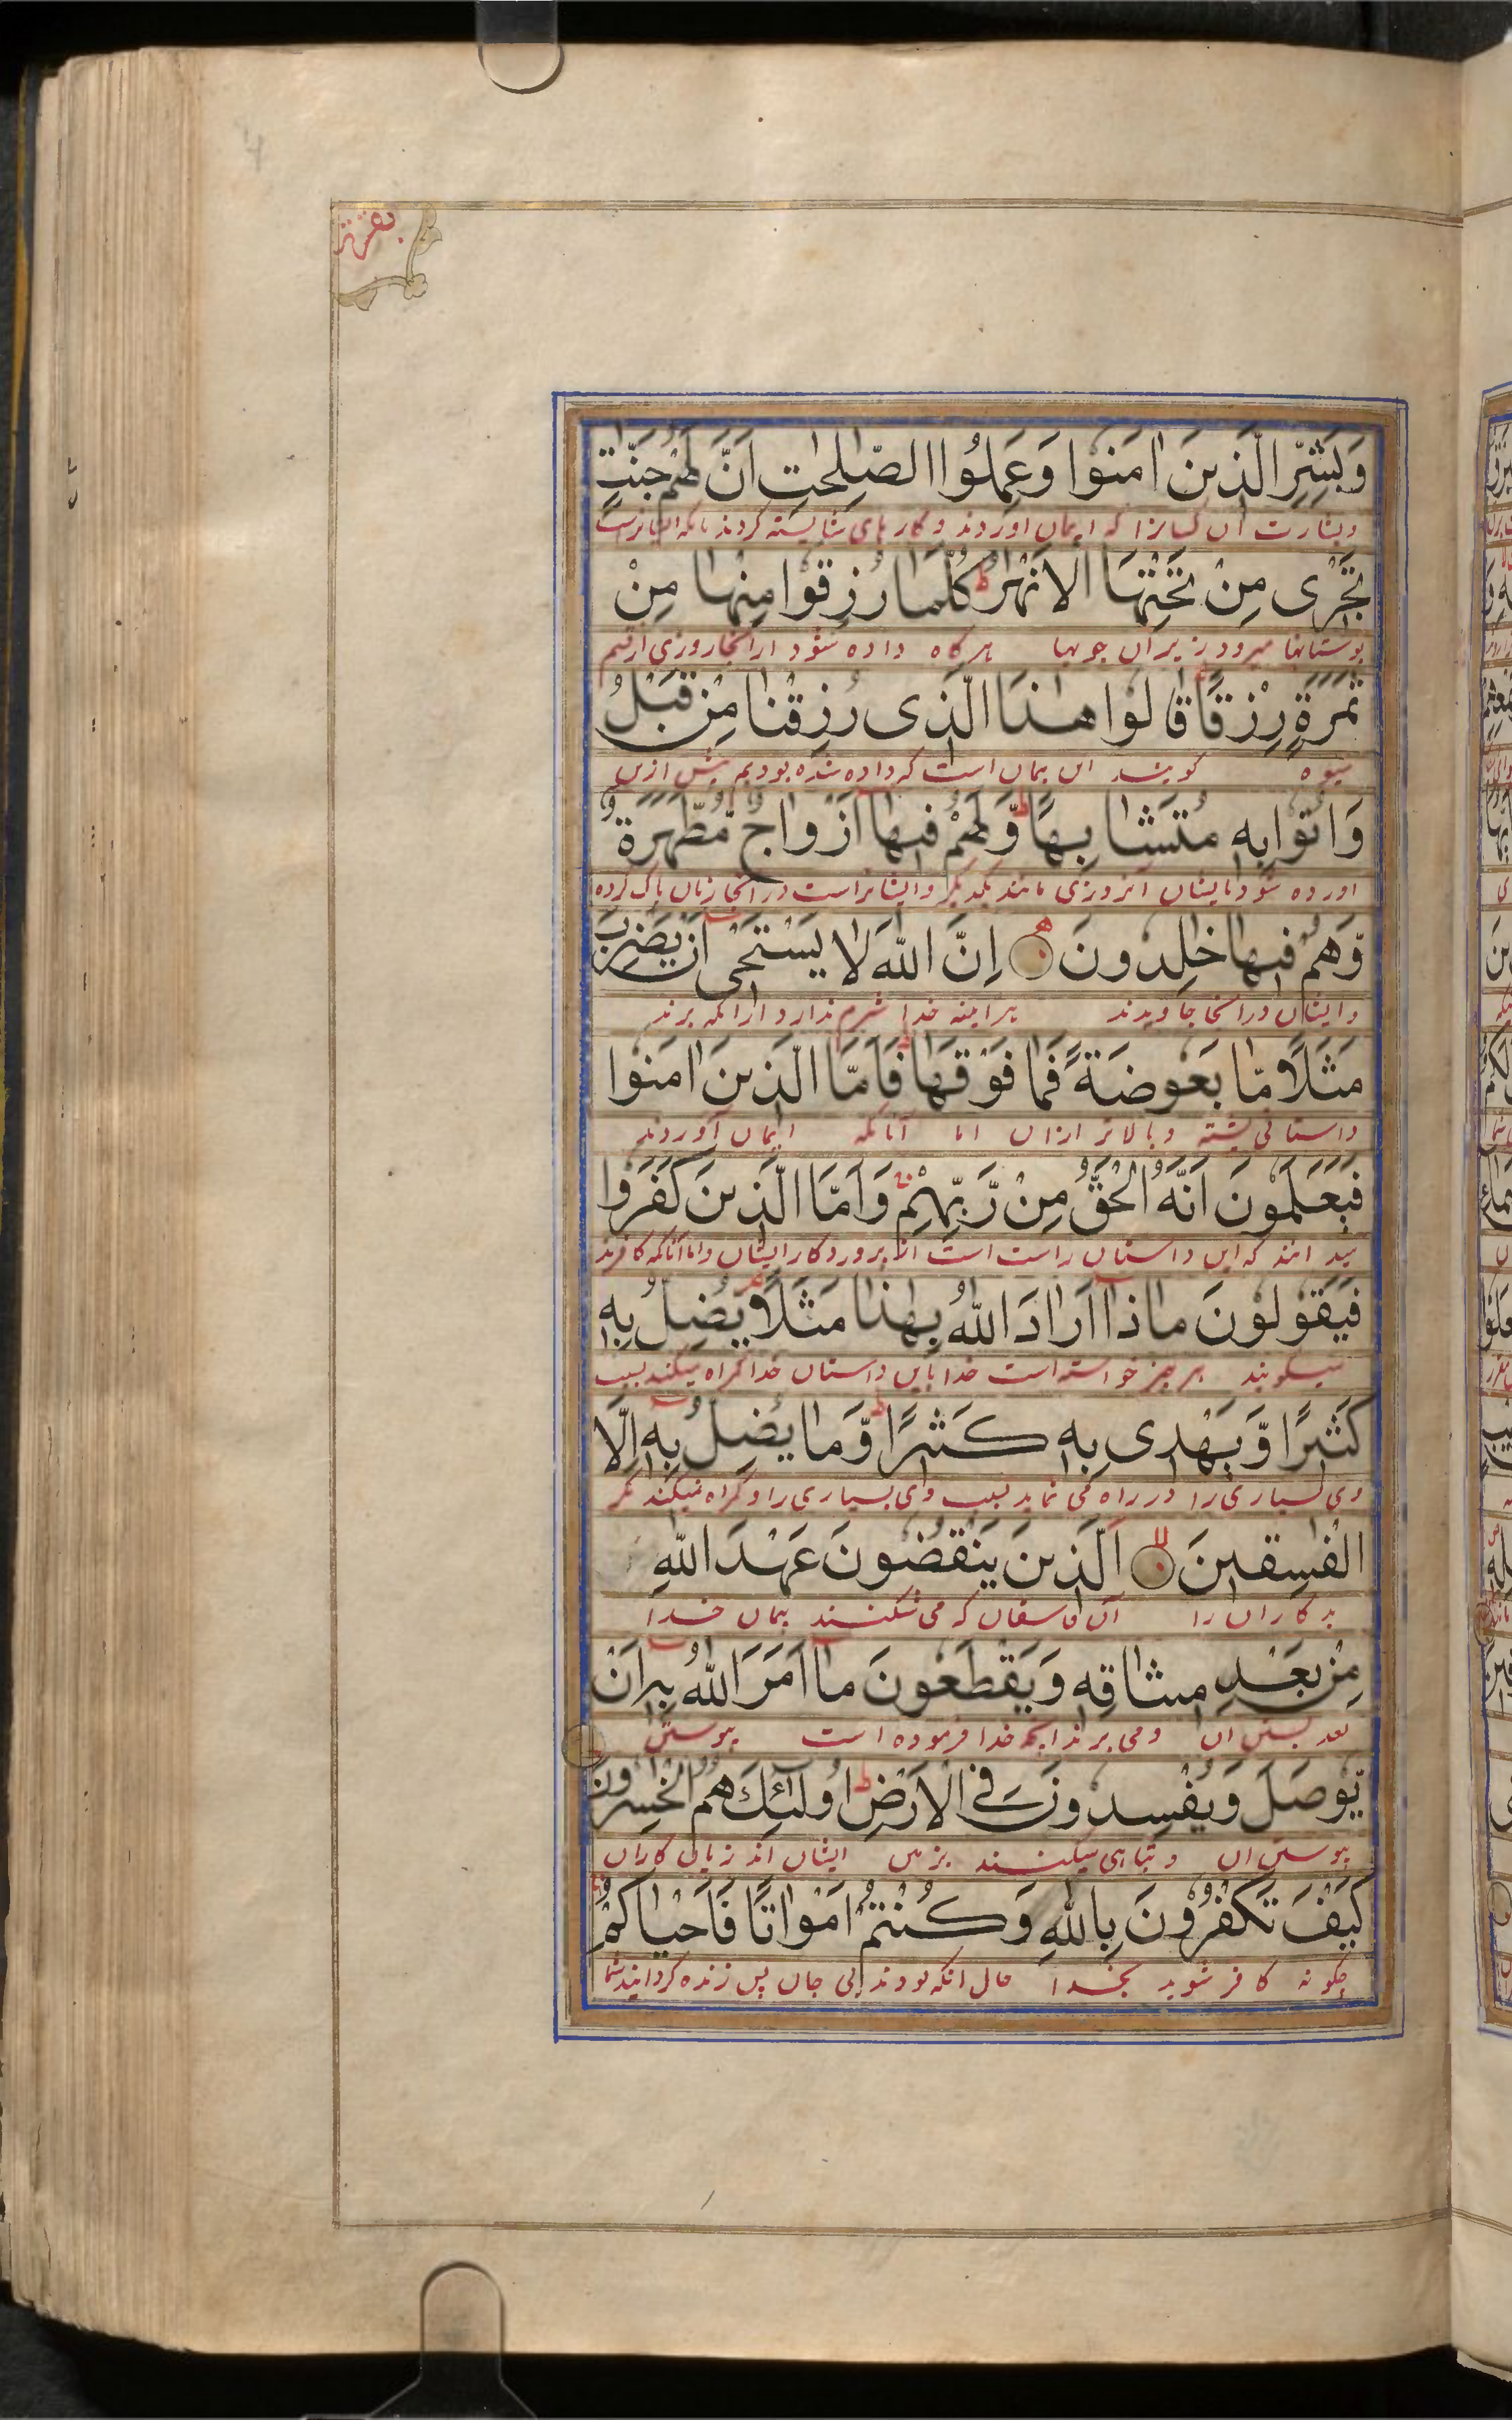 بقرة
وَبَشِّرِ الَّذينَ اٰمَنوُا وَعَمِلُوا الصّٰلِحٰتِ اَنَّ لَهُمْ جَنّٰتٍ
وبشارت آن کسانرا که ایمان اوردند و کارهای شایسته کردند بانکه ایشانراست
تَجْرى مِنْ تَحْتِهَا الْاَنْهٰرُ ط كُلَّمَا رُزِقوُا مِنْهٰا مِنْ
بوستانها میرود زیر آن جویها هرگاه داده شود ازانجا روزی از قسم
ثَمَرَةٍ رِزْقًا قٰالوُا هٰذَا الَّذى رُزِقْنٰا مِنْ قَبْلُ
میوه گویند این همان است که داده شده بودیم پیش ازین
وَاُتوُا بِه مُتَشٰابِهًا ط وَّلَهُمْ فيهٰا اَزْوٰاجٌ مُّطَهَّرَةٌ
اورده شود بایشان آنروزی مانند یکدیگر وایشانراست در انجا زنان پاک کرده
وَّهُمْ فيهٰا خٰلِدوُنَ اِنَّ اللّٰهَ لٰا يَسْتَحْى اَنْ يَضْرِبَ
وایشان درانجا جاویدند هراینه خدا شرم ندارد ازانکه بزند
مَثَلًا مّٰا بَعوُضَةً فَمٰا فَوْقَهٰا ط فَاَمَّا الَّذينَ اٰمَنوُا
داستانی پشه وبالاتر ازان اما آنانکه ایمان آوردند
فَيَعْلَموُنَ اَنَّهُ الْحَقُّ مِنْ رَّبِّهِمْ وَاَمَّا الَّذينَ كَفَروُا
میدانند که این داستان راست است از پروردکار ایشان واما آنانکه کافرند
فَيَقوُلوُنَ مٰاذٰا اَرٰادَ اللّٰهُ بِهٰذٰا مَثَلًا يُضِلُّ بِه
میگویند چه چیز خواسته است خدا باین داستان خدا گمراه میکند بسبب
كَثيرًا وَّيَهْدى بِه كَثيرًا ط وَّمٰا يُضِلُّ بِه اِلَّا
وی بسیاری را و در راه می نماید بسبب وی بسیاری را و گمراه نمیکند مگر
الْفٰسِقينَ اَلَّذينَ يَنْقُضوُنَ عَهْدَ اللّٰهِ
بدکاران را آن فاسقان که می شکنند پیمان خدا
مِنْ بَعْدِ ميثٰاقِه وَيَقْطَعوُنَ مٰا اَمَرَ اللّٰهُ بِه اَنْ
بعد بستن آن و می برند انچه خدا فرموده است پیوستن
يّوُصَلَ وَيُفْسِدوُنَ فِى الْاَرْضِ ط اُولٰئِكَ هُمُ الْخٰسِروُنَ
پیوستن ان و تباهی میکنند در زمین ایشان اند زیان کاران
كَيْفَ تَكْفُروُنَ بِاللّٰهِ وَكُنْتُمْ اَمْوٰاتًا فَاَحْيٰاكُمْ
چگونه کافر شوید بخدا حال انکه بودند بی جان پس زنده گردانید شما